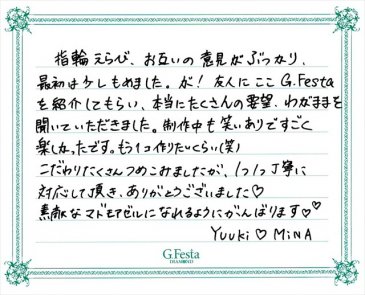 指輪えらび、お互いの意見がぶっかり、
最初は少しもめました。が！友人にここG.Festa
を紹介してもらい、本当にたくさんの要望、わがままを
聞いていただきました。制作中も笑いありですごく
楽しかったです。もう1コ作りたいくらい(笑)
こだわりたくさんつめこみましたが、1つ1つ丁寧に
対応して頂き、ありがとうございました♡
素敵なマドモアゼルになれるようにがんばります♡♡
Yuuki♡MiNA
G.Festa
DIAMOND